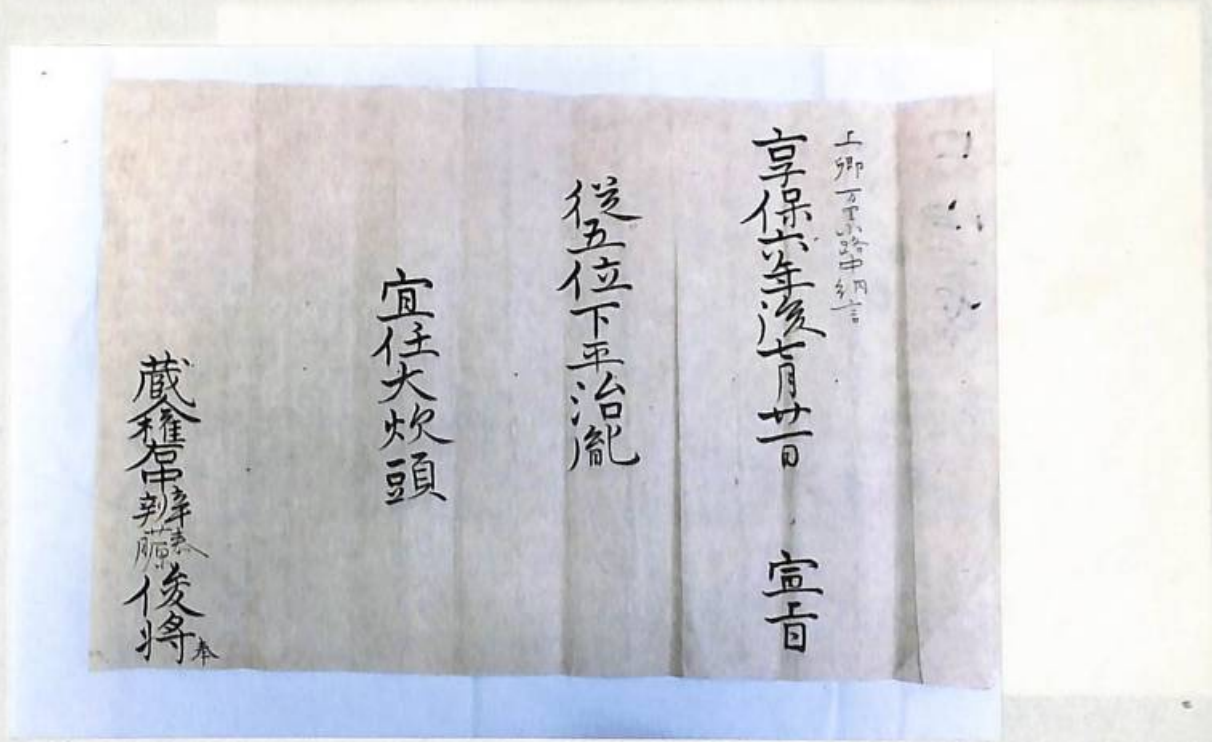 上卿万里路中納言
享保六年後七月廿一日 宣旨
従五位下平治胤
宜任大炊頭
蔵人権右中辨藤原俊将奉